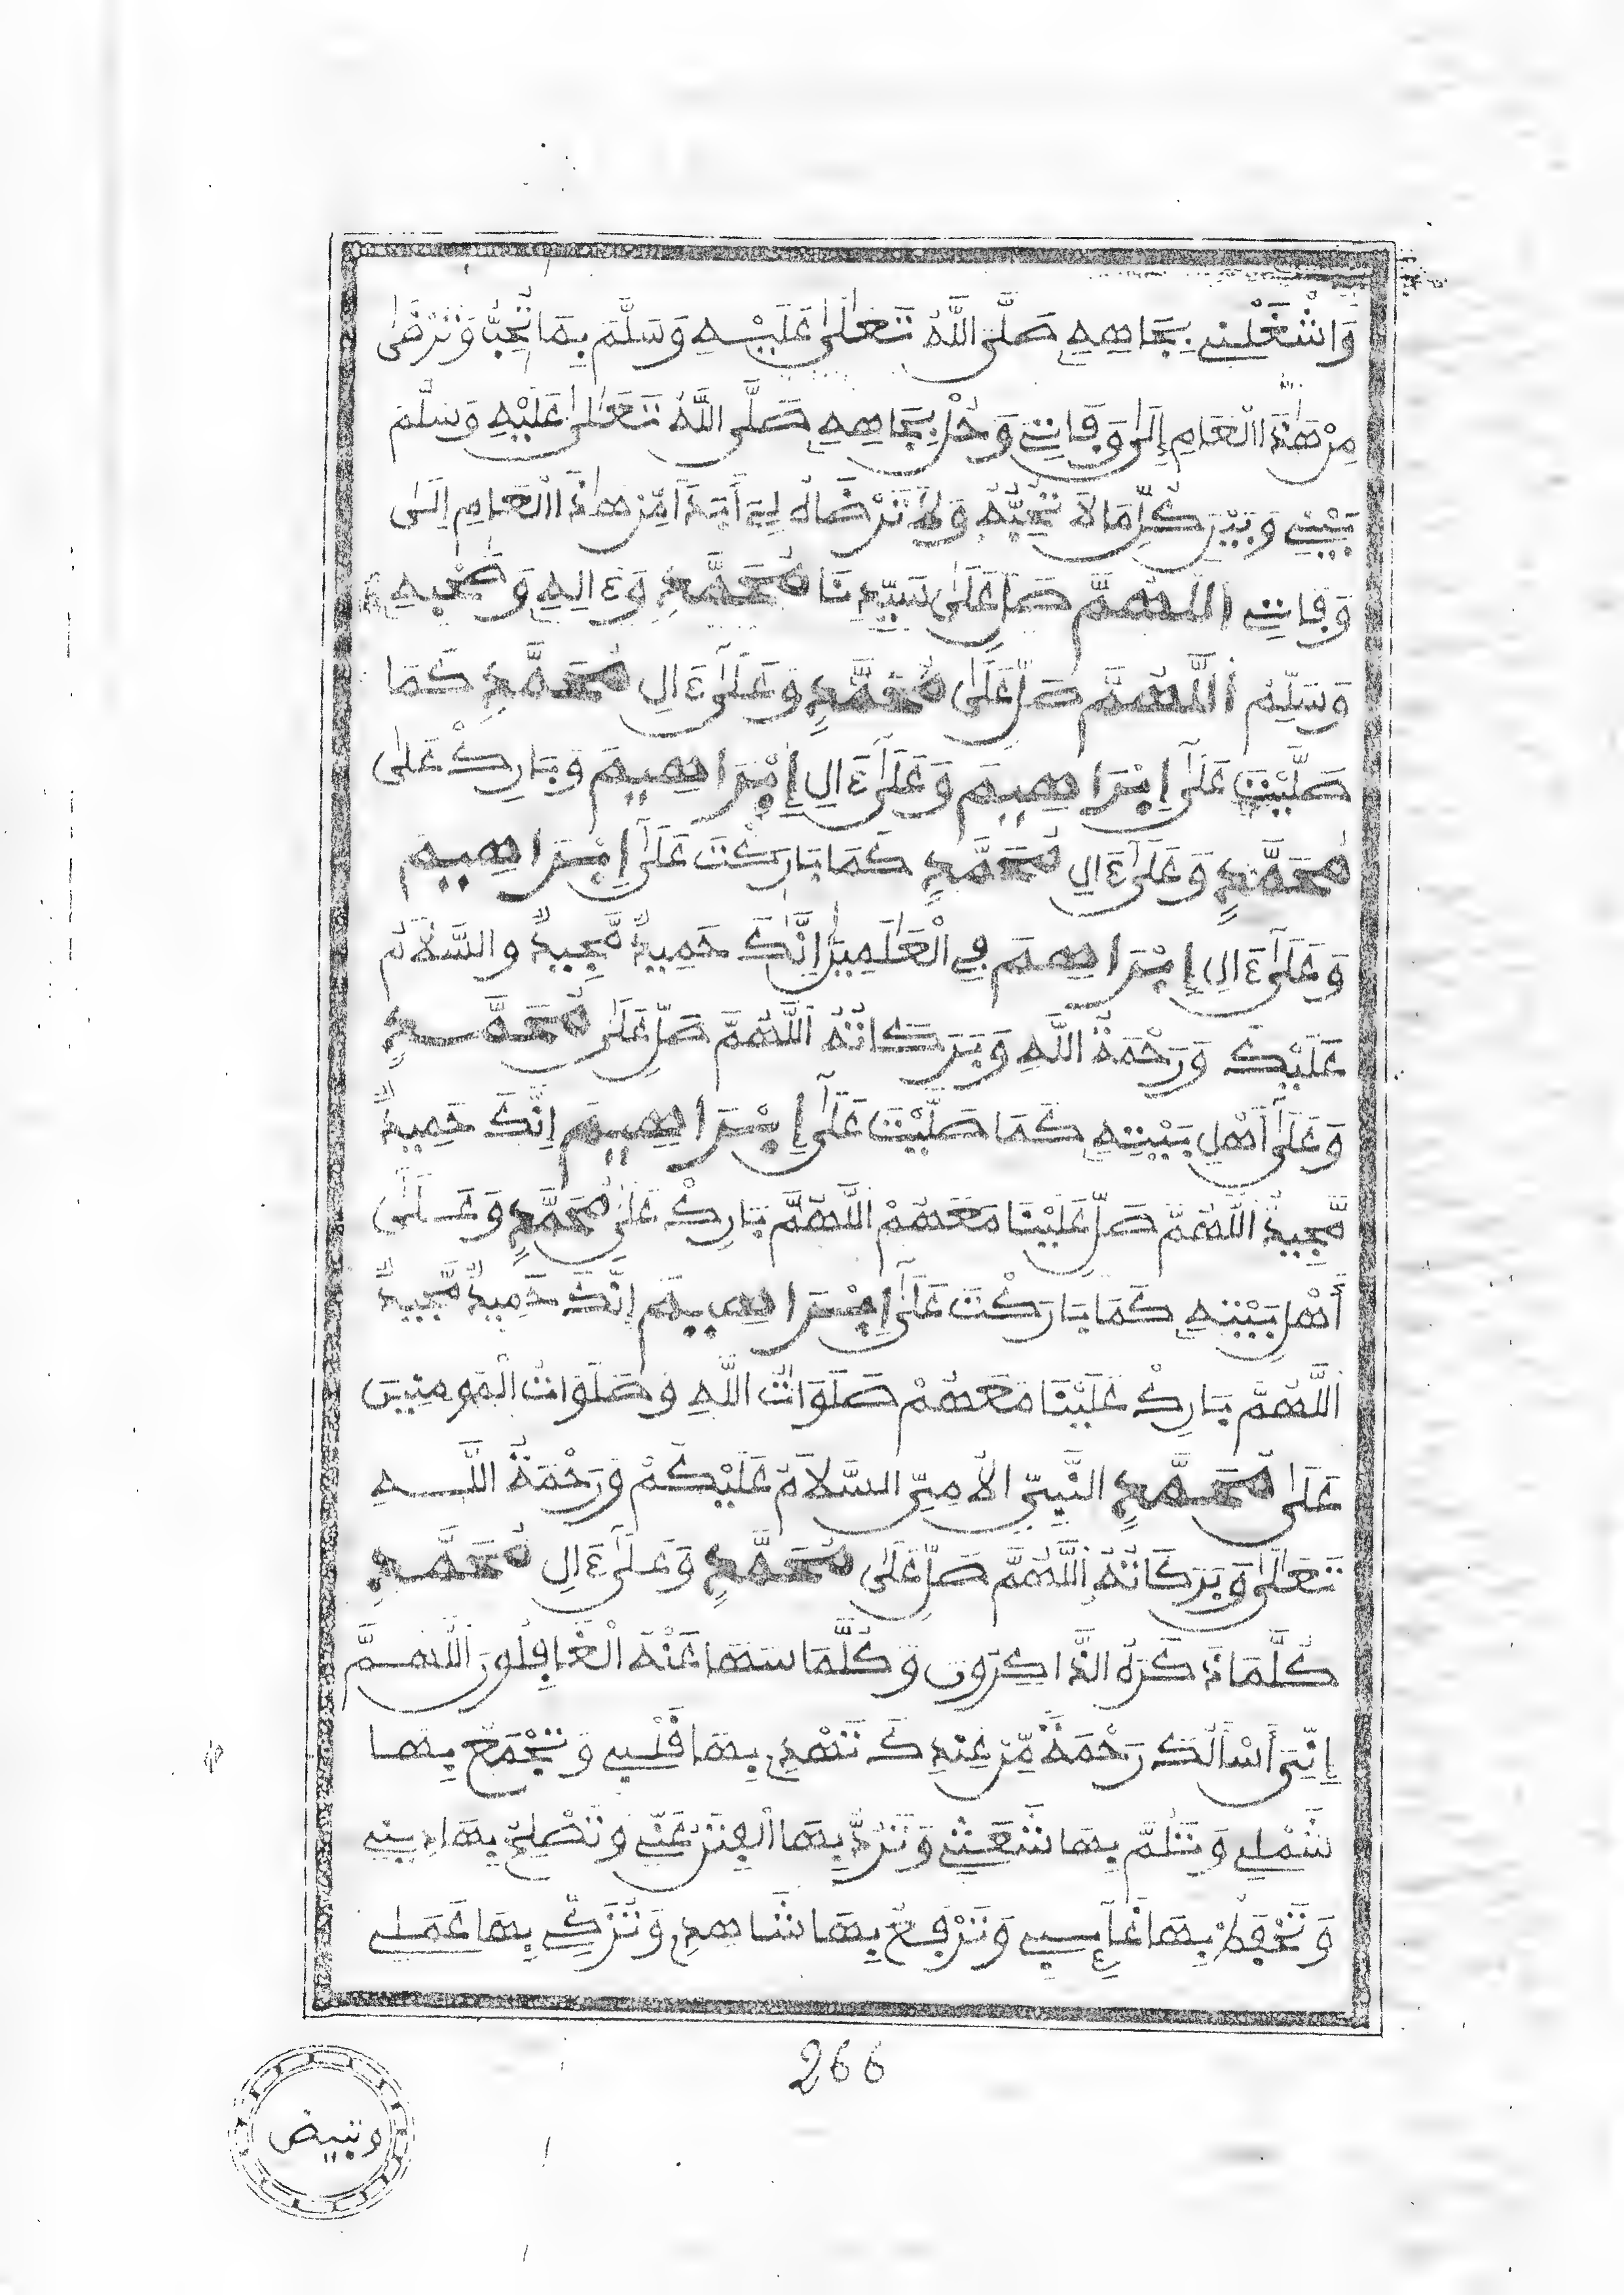 وَاشْغَلْنِے بِجَاهِهِ صَلَّى اللَّهُ تَعَالَىٰ عَلَيْهِ وَسَلَّمَ بِمَا تُحِبُّ وَتَرْضَىٰ
مِنْ هَٰذَا الْعَامِ إِلَىٰ وَفَاتِے وَحُلْ بِجَاهِهِ صَلَّى اللَّهُ تَعَالَىٰ عَلَيْهِ وَسَلَّمَ
بَيْنِے وَبَيْنَ كُلِّ مَا لَا تُحِبُّهُ وَلَا تَرْضَاهُ لِے أَبَدًا مِّنْ هَٰذَا الْعَامِ إِلَىٰ
وَفَاتِے اللَّهُمَّ صَلِّ عَلَىٰ سَيِّدِنَا مُحَمَّدٍ وَءَالِهِ وَصَحْبِهِ
وَسَلِّمْ اللَّهُمَّ صَلِّ عَلَىٰ مُحَمَّدٍ وَعَلَىٰ ءَالِ مُحَمَّدٍ كَمَا
صَلَّيْتَ عَلَىٰ إِبْرَاهِيمَ وَعَلَىٰ ءَالِ إِبْرَاهِيمَ وَبَارِكْ عَلَىٰ
مُحَمَّدٍ وَعَلَىٰ ءَالِ مُحَمَّدٍ كَمَا بَارَكْتَ عَلَىٰ إِبْرَاهِيمَ
وَعَلَىٰ ءَالِ إِبْرَاهِمَ فِے الْعَالَمِينَ إِنَّكَ حَمِيدٌ مَّجِيدٌ وَالسَّلَامُ
عَلَيْكَ وَرَحْمَةُ اللَّهِ وَبَرَكَاتُهُ اللَّهُمَّ صَلِّ عَلَىٰ مُحَمَّدٍ
وَعَلَىٰ أَهْلِ بَيْتِهِ كَمَا صَلَّيْتَ عَلَىٰ إِبْرَاهِيمَ إِنَّكَ حَمِيدٌ
مَّجِيدٌ اللَّهُمَّ صَلِّ عَلَيْنَا مَعَهُمْ اللَّهُمَّ بَارِكْ عَلَىٰ مُحَمَّدٍ وَعَلَىٰ
أَهْلِ بَيْتِهِ كَمَا بَارَكْتَ عَلَىٰ إِبْرَاهِيمَ إِنَّكَ حَمِيدٌ مَّجِيدٌ
اللَّهُمَّ بَارِكْ عَلَيْنَا مَعَهُمْ صَلَوَاتُ اللَّهِ وَصَلَوَاتُ الْمُومِنِينَ
عَلَىٰ مُحَمَّدٍ النَّبِيِّ الْأُمِيِّ السَّلَامُ عَلَيْكُمْ وَرَحْمَةُ اللَّهِ
تَعَالَىٰ وَبَرَكَاتُهُ اللَّهُمَّ صَلِّ عَلَىٰ مُحَمَّدٍ وَعَلَىٰ ءَالِ مُحَمَّدٍ
كُلَّمَا ذَكَرَهُ الذَّاكِرُونَ وَكُلَّمَا سَهَا عَنْهُ الْغَافِلُونَ اللَّهُمَّ
إِنِّيَ أَسْأَلُكَ رَحْمَةً مِّنْ عِندِكَ تَهْدِے بِهَا قَلْبِے وَتَجْمَعُ بِهَا
شَمْلِے وَتَلُمُّ بِهَا شَعَثِے وَتَرُدُّ بِهَا الْفِتَنَ عَنِّے وَتُصْلِحُ بِهَا دِينِے
وَتَحْفَظُ بِهَا غَآئِبِے وَتَرْفَعُ بِهَا شَاهِدِے وَتُزَكِّے بِهَا عَمَلِے
266
وتبيض